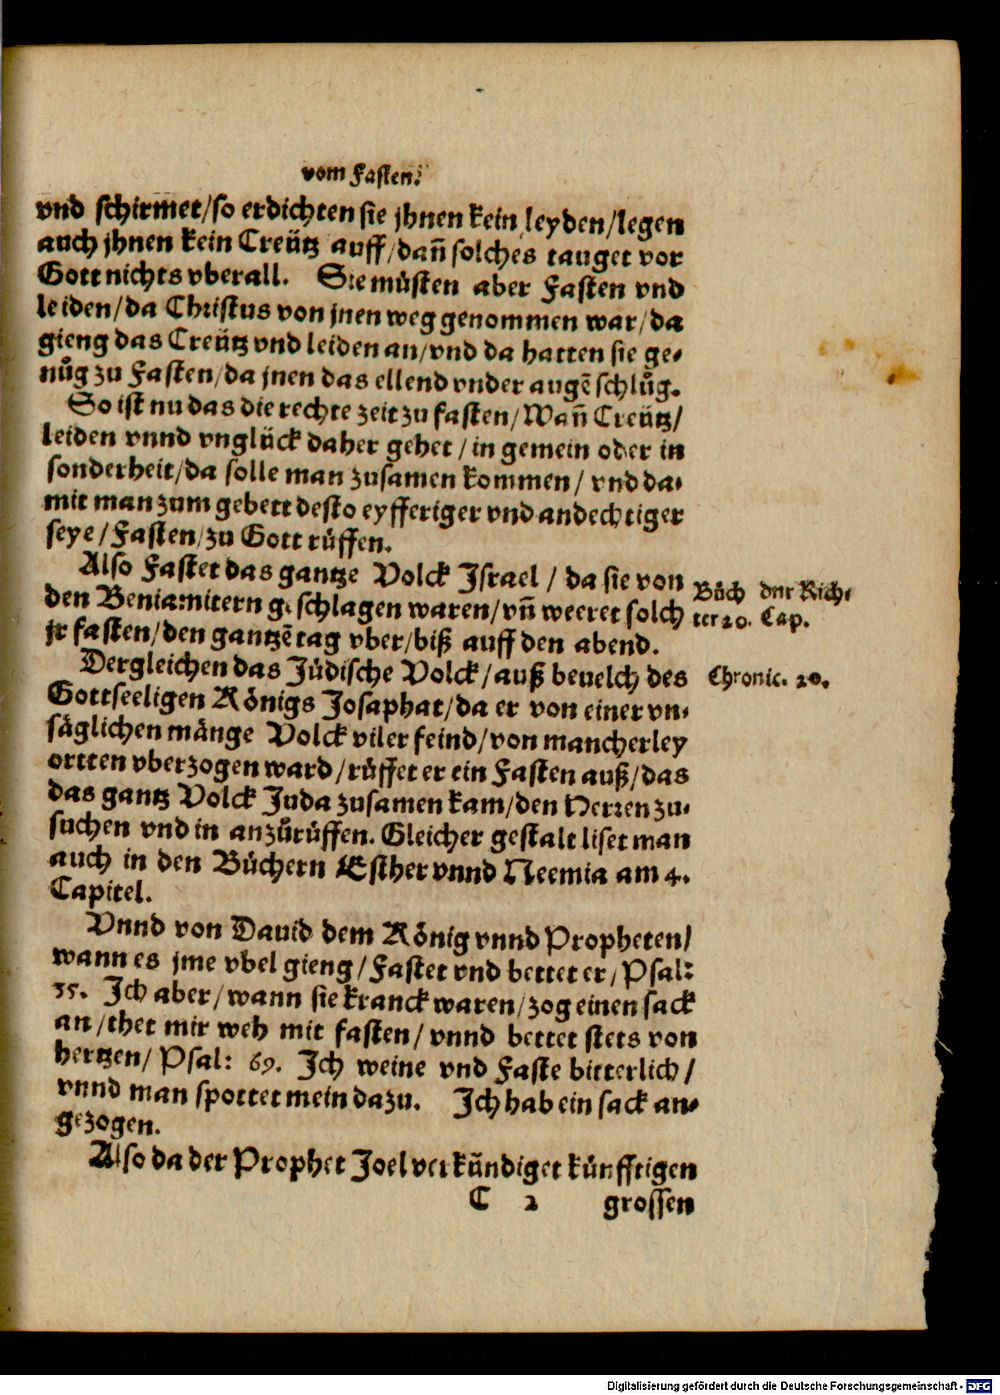 vom Fasten.
vnd schirmet/so erdichten sie jhnen kein leyden/legen
auch jhnen kein Creütz auff/dañ solches tauget vor
Gott nichts vberall. Sie müsten aber Fasten vnd
leiden/da Christus von jnen weg genommen war/da
gieng das Creütz vnd leiden an/vnd da hatten sie ge-
nůg zu Fasten/da jnen das ellend vnder augē schlůg.
So ist nu das die rechte zeit zu fasten/Wañ Creütz/
leiden vnnd vnglück daher gehet/in gemein oder in
sonderheit/da solle man zusamen kommen/vnd da-
mit man zum gebett desto eyfferiger vnd andechtiger
seye/Fasten/zu Gott rüffen.
Also Fastet das gantze Volck Israel/da sie von
den Beniamitern geschlagen waren/vñ weeret solch
jr fasten/den gantzē tag vber/biß auff den abend.
Büch der Rich-
ter 20. Cap.
Dergleichen das Jüdische Volck/auß beuelch des
Gottseeligen Königs Josaphat/da er von einer vn-
säglichen mänge Volck viler feind/von mancherley
ortten vberzogen ward/rüffet er ein Fasten auß/das
das gantz Volck Juda zusamen kam/den Herren zu-
suchen vnd in anzůrüffen. Gleicher gestalt liset man
auch in den Büchern Esther vnnd Neemia am 4.
Capitel.
Chronic. 20.
Vnnd von Dauid dem König vnnd Propheten/
wann es jme vbel gieng/Fastet vnd bettet er/Psal:
35. Ich aber/wann sie kranck waren/zog einen sack
an/thet mir weh mit fasten/vnnd bettet stets von
hertzen/Psal: 69. Ich weine vnd Faste bitterlich/
vnnd man spottet mein dazu. Ich hab ein sack an-
gezogen.
Also da der Prophet Joel verkündiget künfftigen
C 2 grossen
Digitalisierung gefördert durch die Deutsche Forschungsgemeinschaft - DFG